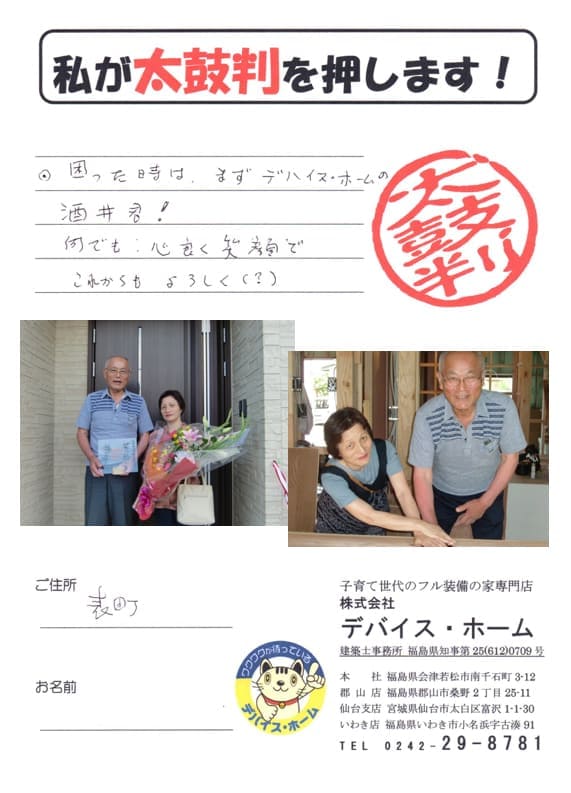 私が太鼓判を押します！
◎ 困った時は、まずデバイス・ホームの
酒井君！
何でも、心良く笑顔で
これからも よろしく（？）
太鼓判
ご住所
表町
お名前
ワクワクが待っている
デバイス・ホーム
子育て世代のフル装備の家専門店
株式会社
デバイス・ホーム
建築士事務所 福島県知事第25(612)0709号
本 社 福島県会津若松市南千石町3-12
郡山店 福島県郡山市桑野2丁目25-11
仙台支店 宮城県仙台市太白区富沢1-1-30
いわき店 福島県いわき市小名浜字古湊91
TEL 0242-29-8781